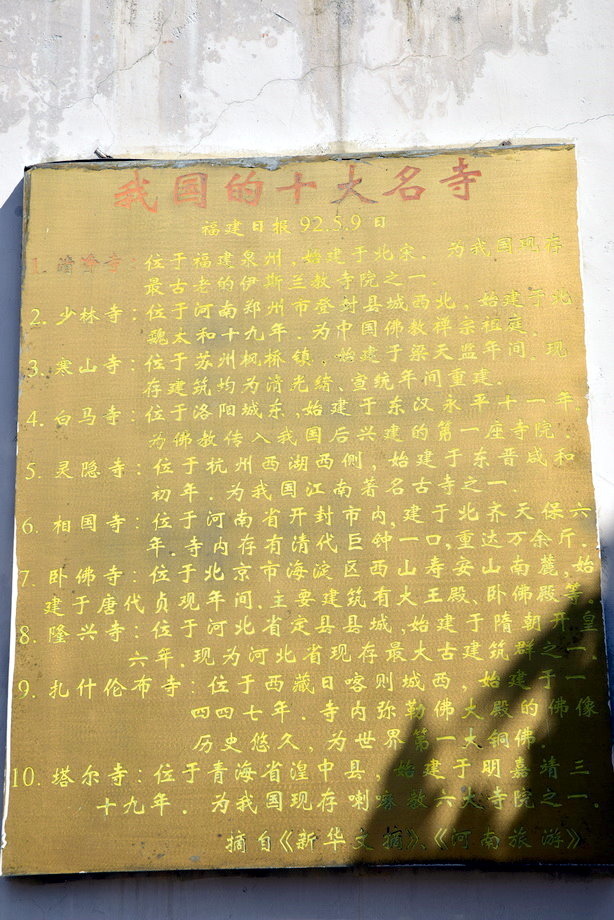 我国的十大名寺
福建日报 92.5.9日
1. 清净寺：位于福建泉州，始建于北宋．为我国现存
最古老的伊斯兰教寺院之一．
2. 少林寺：位于河南郑州市登封县城西北，始建于北
魏太和十九年．为中国佛教禅宗祖庭．
3. 寒山寺：位于苏州枫桥镇，始建于梁天监年间．现
存建筑均为清光绪、宣统年间重建．
4. 白马寺：位于洛阳城东，始建于东汉永平十一年，
为佛教传入我国后兴建的第一座寺院．
5. 灵隐寺：位于杭州西湖西侧，始建于东晋咸和
初年．为我国江南著名古寺之一．
6. 相国寺：位于河南省开封市内，建于北齐天保六
年．寺内存有清代巨钟一口，重达万余斤．
7. 卧佛寺：位于北京市海淀区西山寿安山南麓，始
建于唐代贞现年间．主要建筑有大王殿、卧佛殿等．
8. 隆兴寺：位于河北省定县县城，始建于隋朝开皇
六年．现为河北省现存最大古建筑群之一．
9. 扎什伦布寺：位于西藏日喀则城西，始建于一
四四七年．寺内弥勒佛大殿的佛像
历史悠久，为世界第一大铜佛．
10. 塔尔寺：位于青海省湟中县，始建于明嘉靖三
十九年．为我国现存喇嘛教六大寺院之一．
摘自《新华文摘》、《河南旅游》